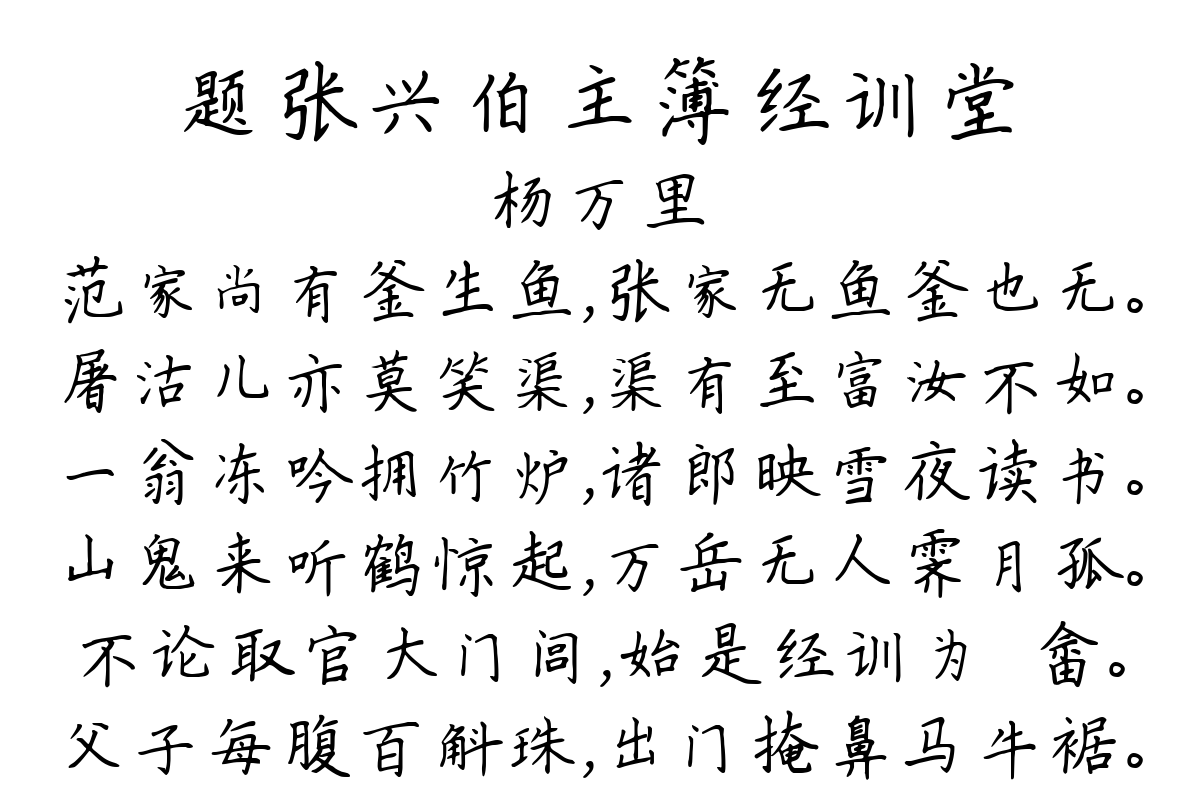 题张兴伯主簿经训堂
杨万里
范家尚有釜生鱼,张家无鱼釜也无。
屠沽儿亦莫笑渠,渠有至富汝不如。
一翁冻吟拥竹炉,诸郎映雪夜读书。
山鬼来听鹤惊起,万岳无人霁月孤。
不论取官大门闾,始是经训为 畬。
父子每腹百斛珠,出门掩鼻马牛裾。